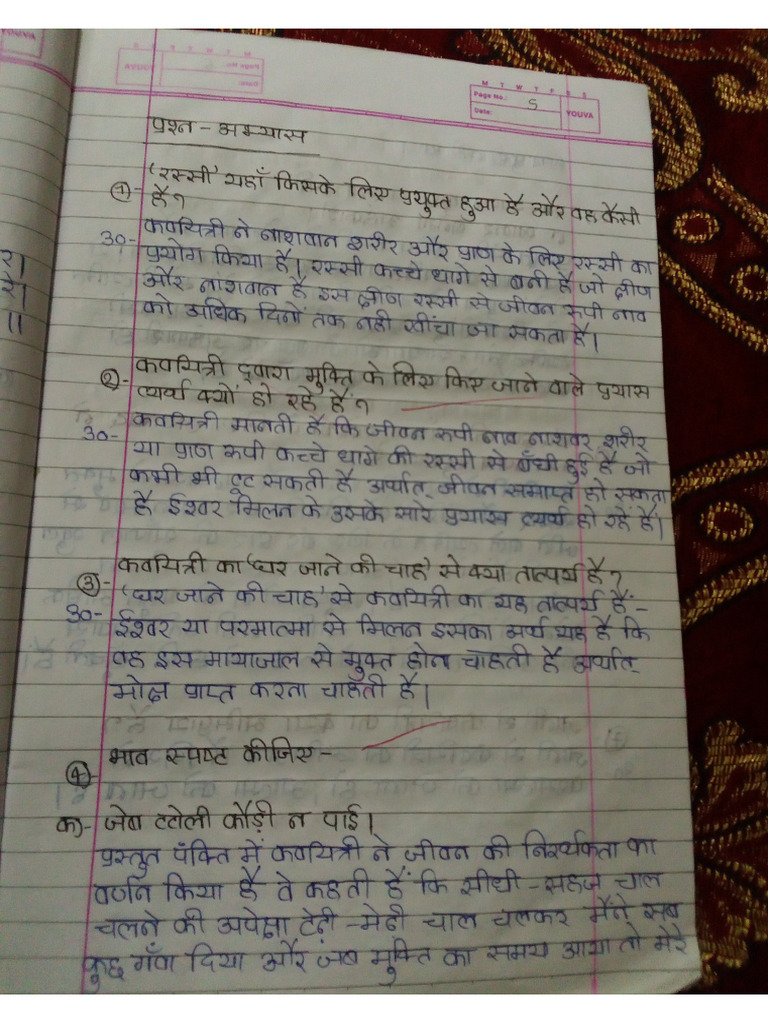 M T W T F S S
Page No.: 5
Date:
YOUVA
प्रश्न - अभ्यास
①- 'रस्सी' यहाँ किसके लिए प्रयुक्त हुआ है और वह कैसी
है?
उ०- कवयित्री ने नाशवान शरीर और प्राण के लिए रस्सी का
प्रयोग किया है। रस्सी कच्चे धागे से बनी है जो क्षीण
और नाशवान है इस क्षीण रस्सी से जीवन रूपी नाव
को अधिक दिनों तक नही खींचा जा सकता है।
②- कवयित्री द्वारा मुक्ति के लिए किए जाने वाले प्रयास
व्यर्थ क्यों हो रहे हैं?
उ०- कवयित्री मानती है कि जीवन रूपी नाव नाशवर शरीर
या प्राण रूपी कच्चे धागे की रस्सी से बँधी हुई है जो
कभी भी टूट सकती है अर्थात् जीवन समाप्त हो सकता
है ईश्वर मिलन के उसके सारे प्रयास व्यर्थ हो रहें हैं।
③- कवयित्री का 'घर जाने की चाह' से क्या तात्पर्य है?
उ०- 'घर जाने की चाह' से कवयित्री का यह तात्पर्य हैं-
ईश्वर या परमात्मा से मिलन इसका अर्थ यह है कि
वह इस मायाजाल से मुक्त होन चाहती है अर्थात्
मोक्ष प्राप्त करता चाहती है।
④- भाव स्पष्ट कीजिए -
क)- जेब टटोली कौड़ी न पाई।
प्रस्तुत पंक्ति में कवयित्री ने जीवन की निरर्थकता का
वर्णन किया है वे कहती हैं कि सीधी - सहज चाल
चलने की अपेक्षा टेढ़ी - मेढ़ी चाल चलकर मैंने सब
कुछ गँवा दिया और जब मुक्ति का समय आया तो मेरे